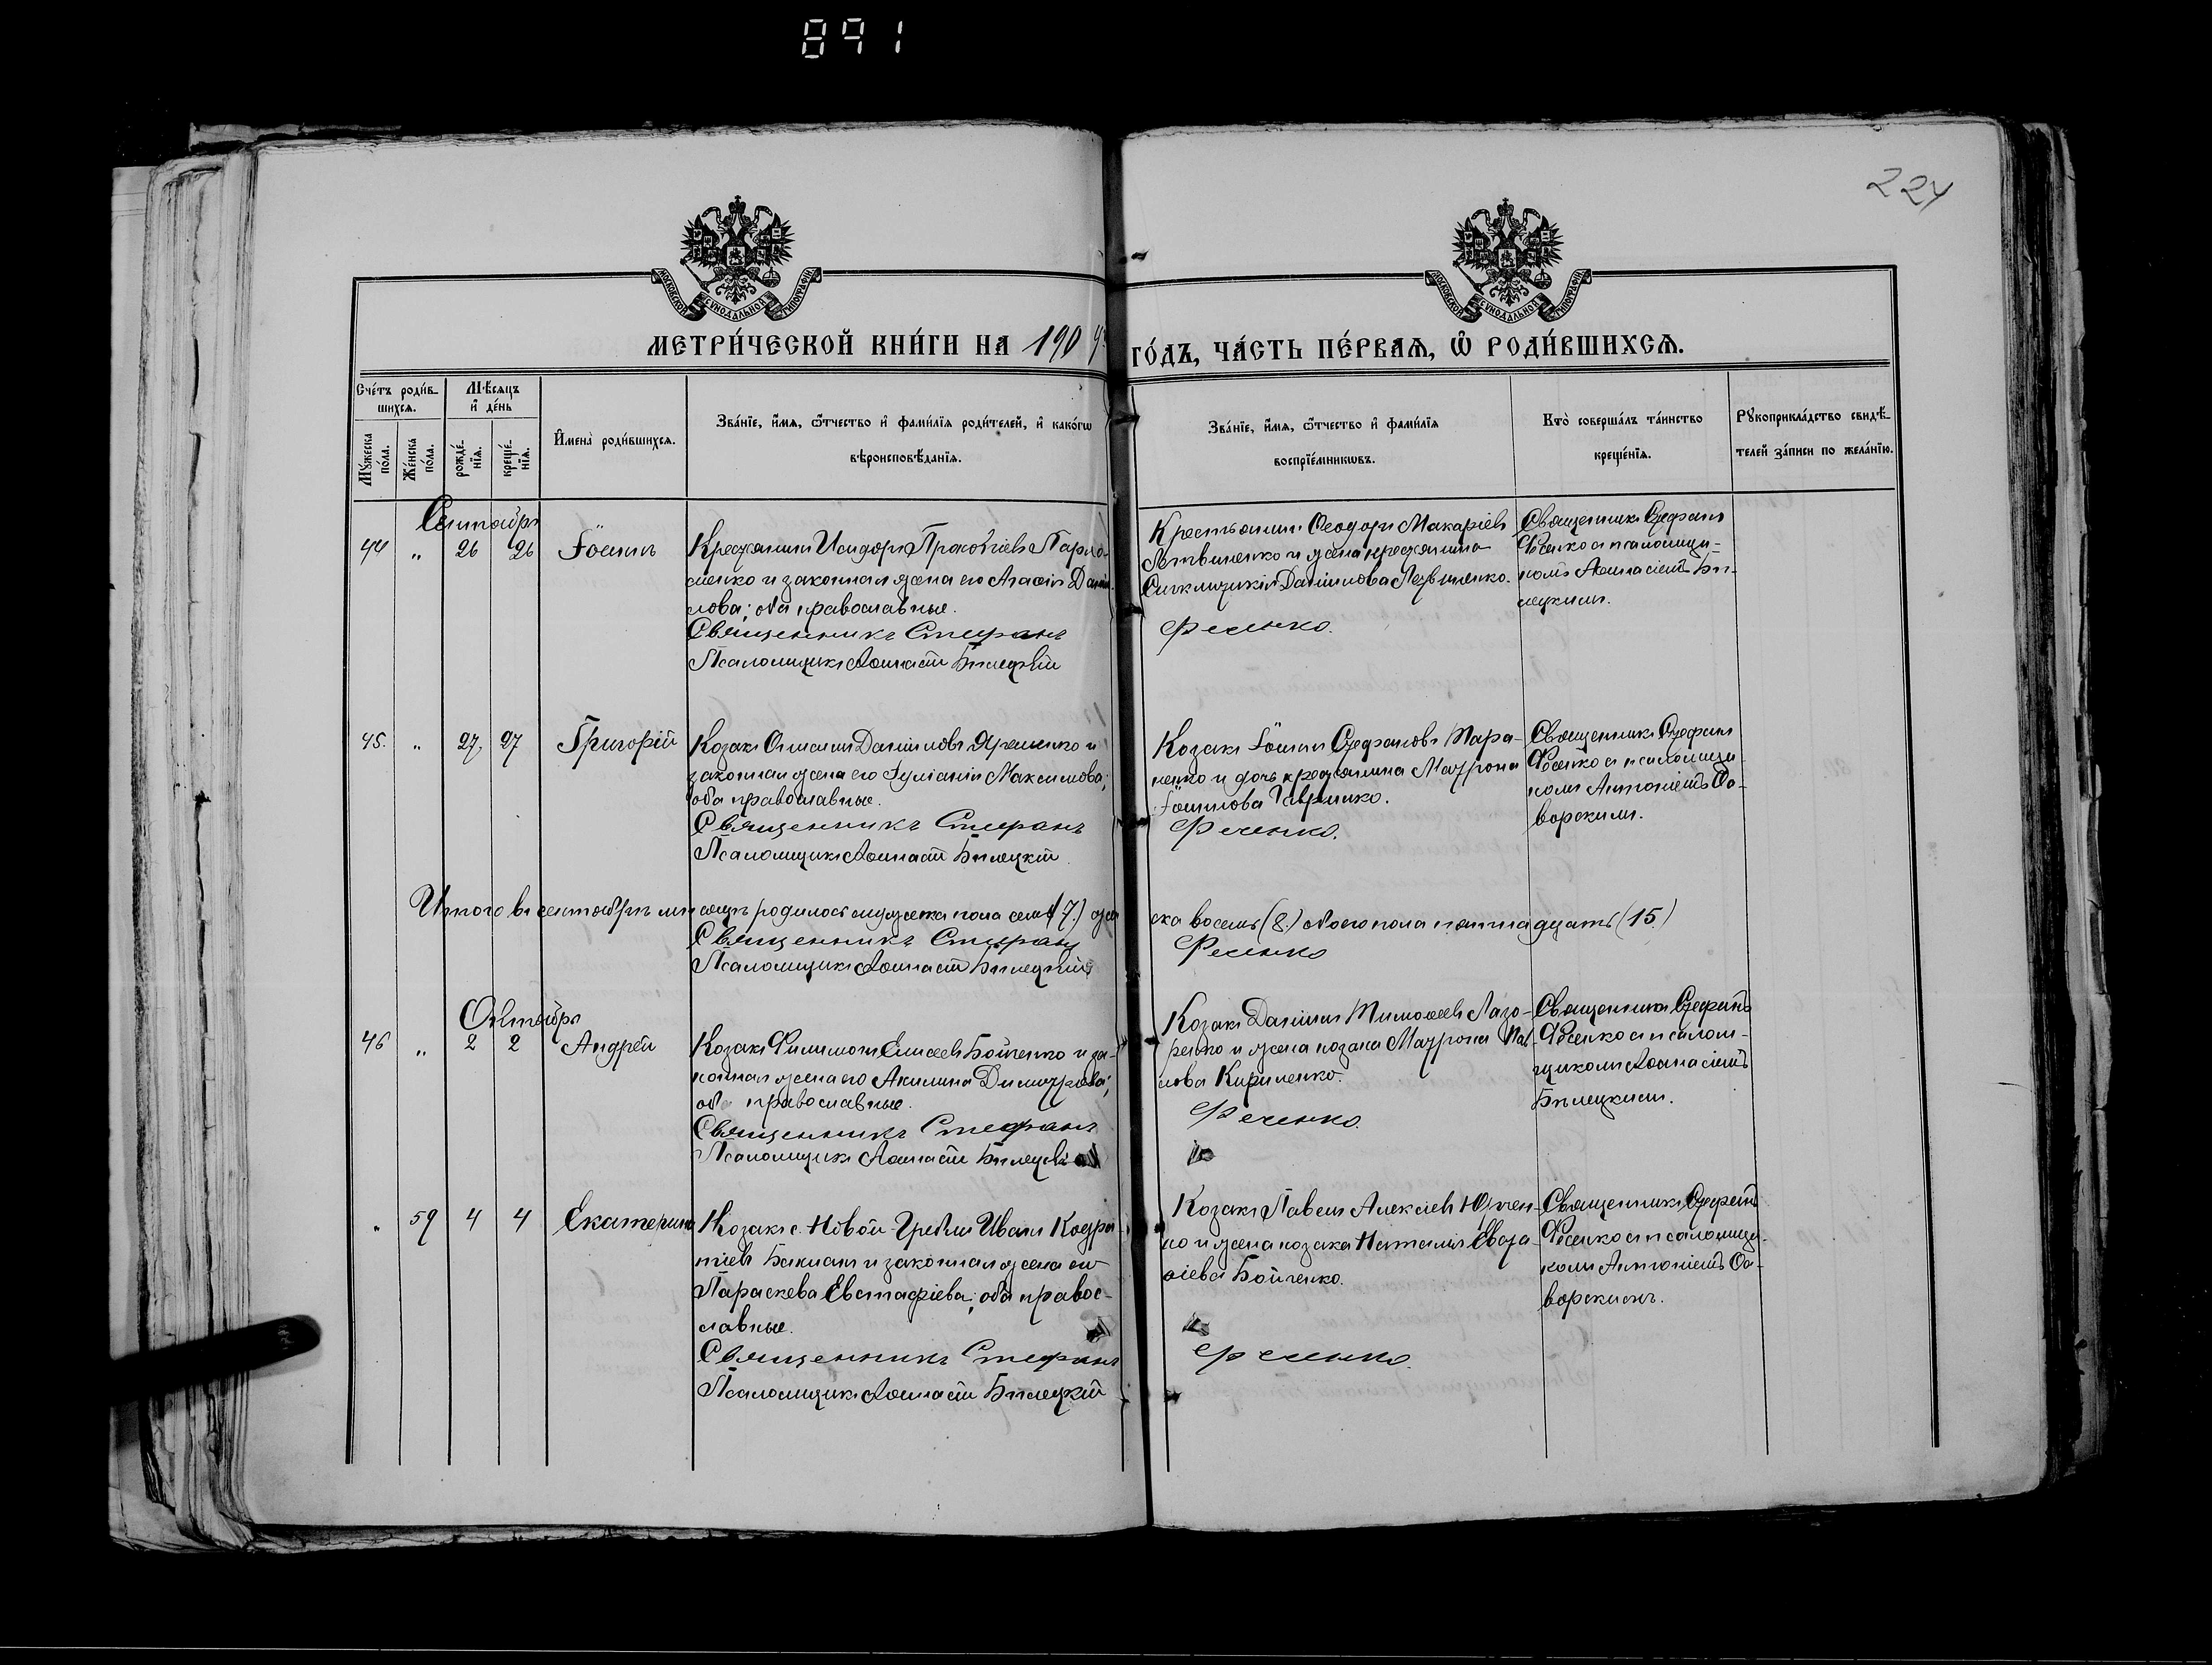 891
224
МОСКОВСКОЙ СУНОДАЛЬНОЙ ТИПОГРАФІИ
МОСКОВСКОЙ СУНОДАЛЬНОЙ ТИПОГРАФІИ
МЕТРИ́ЧЕСКОЙ КНИ́ГИ НА 1904 ГО́ДЪ, ЧА́СТЬ ПЕ́РВАЯ, Ѡ РОДИ́ВШИХСЯ.
Сче́тъ роди́в-
шихся.
Мѣ́сяцъ
и де́нь
Мꙋ́жеска по́ла.
Же́нска по́ла.
рожде́-
нїя.
креще́-
нїя.
И҆мена̀ роди́вшихся.
Зва́нїе, и҆́мя, ѻ҆́тчество и҆ фами́лїя роди́телей, и҆ како́гѡ
вѣроисповѣ́данїя.
Зва́нїе, и҆́мя, ѻ҆́тчество и҆ фами́лїя
воспрїе́мникѡвъ.
Кто̀ соверша́лъ та́инство
креще́нїя.
Рꙋкоприкла́дство свидѣ́-
телей за́писи по жела́нїю.
Сентябрь
44 " 26 26 Іоаннъ
Крестьянинъ Исидоръ Прокопіевъ
и законная жена его Дани-
лова; оба православные.
Священникъ Стефанъ
Псаломщикъ Аѳанасій Билецкій
Крестьянинъ Ѳеодоръ Макаріевъ
Литвиненко и жена крестьянина
Синклитикія Даніилова Литвиненко.
Фесенко.
Священникъ Стефанъ
Фесенко съ псаломщи-
комъ Аѳанасіемъ Би-
лецкимъ.
45. " 27, 27 Григорій
Козакъ Даніиловъ Яременко и
законная жена его Іуліанія Максимова;
оба православные.
Священникъ Стефанъ
Псаломщикъ Аѳанасій Билецкій
Козакъ Іоаннъ Стефановъ Пара-
ненко и дочь крестьянина Матрона
Іоаннова Гавриленко.
Фесенко.
Священникъ Стефанъ
Фесенко съ псаломщи-
комъ Антоніемъ
ворскимъ.
Итого въ сентябрѣ мѣсяцѣ родилось мужеска пола семь (7.) жен
ска восемь (8.) обоего пола пятнадцать (15.)
Священникъ Стефанъ
Фесенко
Псаломщикъ Аѳанасій Билецкій
Октябрь
46 " 2 2 Андрей
Козакъ Филимонъ Елисеевъ Бойченко и за-
конная жена его Акилина Димитріева;
оба православные.
Священникъ Стефанъ
Псаломщикъ Аѳанасій Билецкій
Козакъ Даніилъ Тимоѳеевъ Лазо-
ренко и жена козака Матрона Пав-
лова Кириленко.
Фесенко.
Священникъ Стефанъ
Фесенко съ псалом-
щикомъ Аѳанасіемъ
Билецкимъ.
" 59 4 4 Екатерина
Козакъ с. Новой-Гребли Иванъ Кодра-
тіевъ Бакланъ и законная жена его
Параскева Евстафіева; оба право-
славные.
Священникъ Стефанъ
Псаломщикъ Аѳанасій Билецкій
Козакъ Павелъ Алексіевъ Юрчен-
ко и жена козака Наталія
Бойченко.
Фесенко.
Священникъ Стефанъ
Фесенко съ псаломщи-
комъ Антоніемъ
ворскимъ.